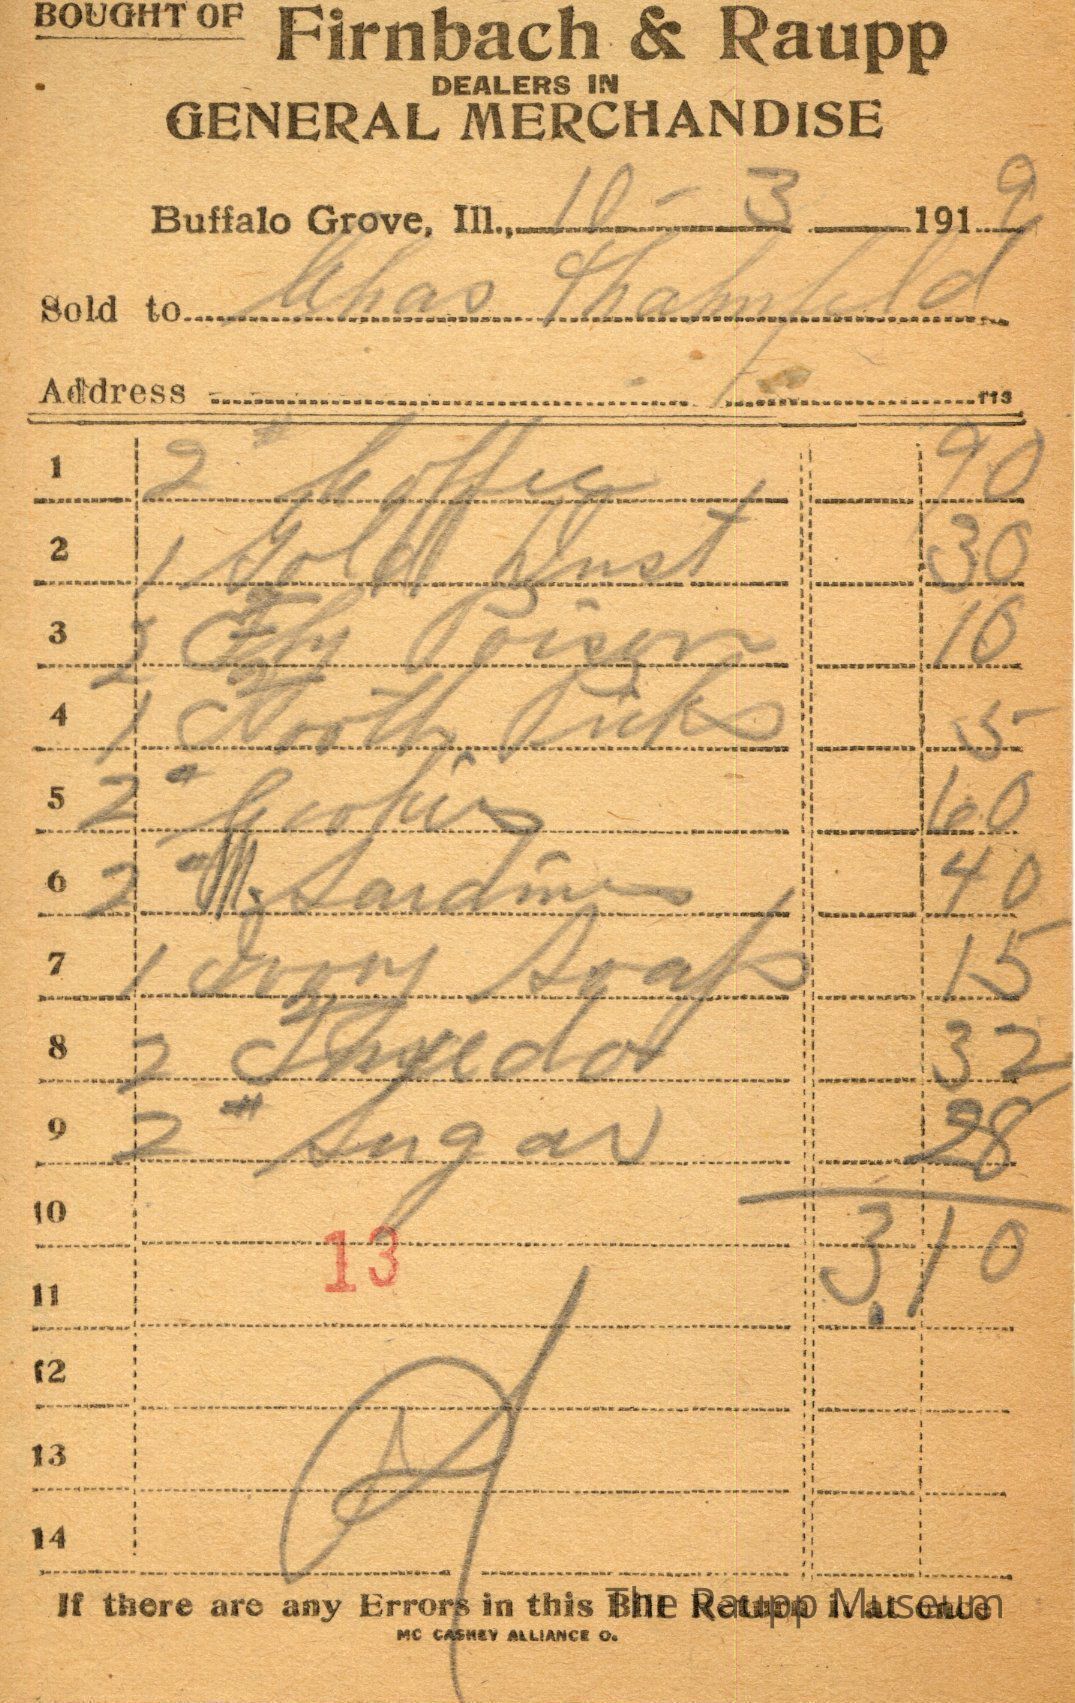 BOUGHT OF Firnbach & Raupp
DEALERS IN
GENERAL MERCHANDISE
Buffalo Grove, Ill., 10-3 1919
Sold to Chas
Address
1 2# Coffee 90
2 1 Gold Dust 30
3 2 Fly Poison 10
4 1 Tooth Picks 5
5 2# Cookies 60
6 2 Sardines 40
7 1 Ivory Soap 15
8 2 Tuxedo 32
9 2# Sugar 28
10 3.10
13
11
12
13
14
If there are any Errors in this Bill Return it at once
The Raupp Museum
MC CASKEY ALLIANCE O.